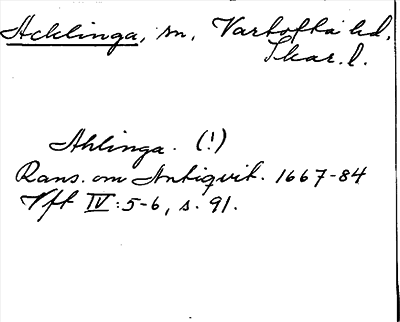 Acklinga, sn, Vartofta hd.
Skar. l.
Ahlinga. (!)
Rans. om Antiqvit. 1667-84
Vft IV: 5-6, s. 91.